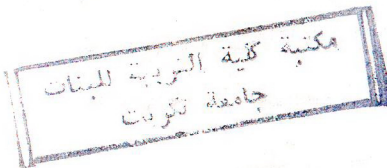 مكتبة كلية التربية للبنات
جامعة تكريت